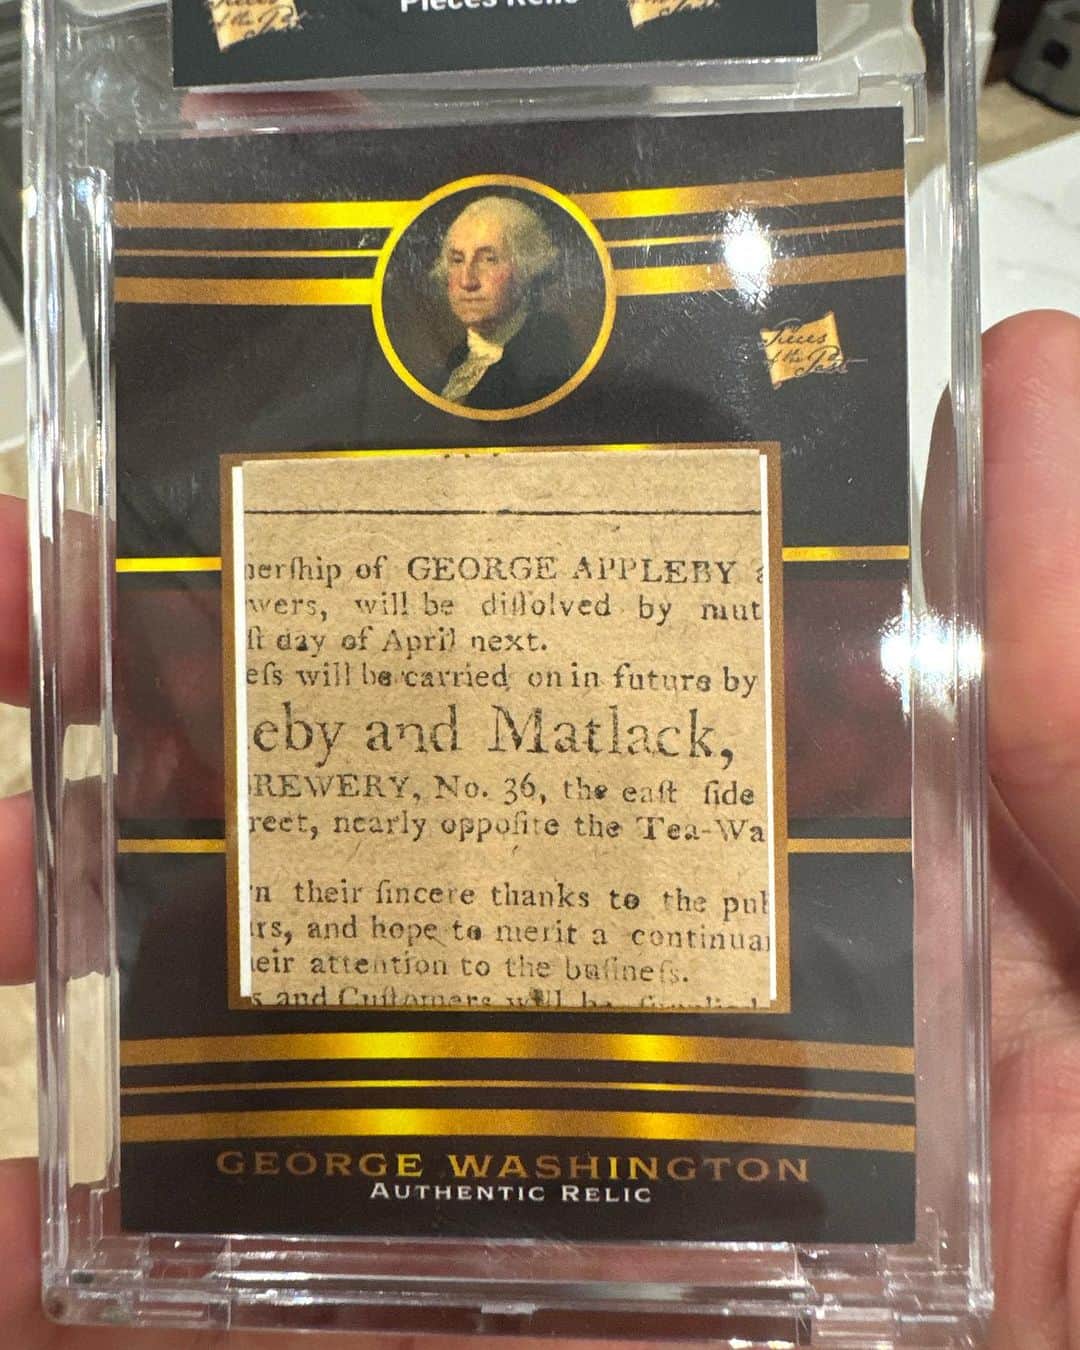 Pieces Relic
Pieces
of the Past
nerſhip of GEORGE APPLEBY
wers, will be diſſolved by mut
ſt day of April next.
eſs will be carried on in future by
eby and Matlack,
REWERY, No. 36, the eaſt ſide
reet, nearly oppoſite the Tea-Wa
n their ſincere thanks to the pub
rs, and hope to merit a continua
eir attention to the buſineſs.
s and Cuſtomers will be ſupplied
GEORGE WASHINGTON
AUTHENTIC RELIC